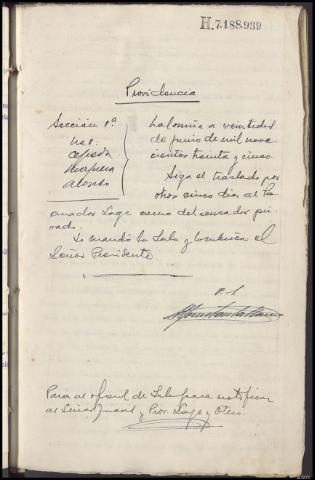 H.7.188.939
Providencia
Sección 1ª
Cepeda
Alonso
La Coruña a veintidos
de junio de mil nove
cientos treinta y cinco.
Siga el traslado por
otros cinco dias al Pro
curador Lage como del acusador pri
vado.
Lo mandó la Sala y rubrica el
Señor Presidente.
Pasa al oficial de Sala para notificar
al Señor Fiscal y Pror. Lage y Otero.